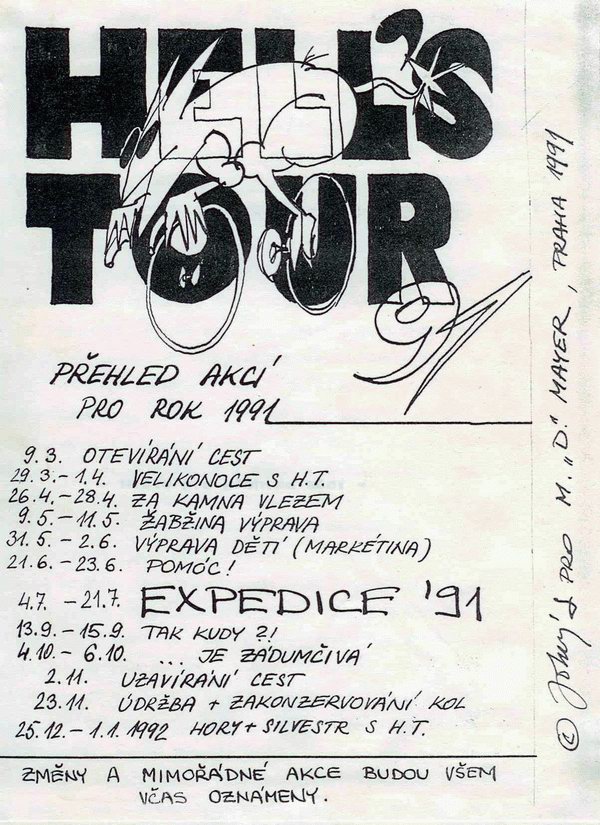 HELL'S
TOUR
91
PŘEHLED AKCÍ
PRO ROK 1991
9.3. OTEVÍRÁNÍ CEST
29.3.-1.4. VELIKONOCE S H.T.
26.4.-28.4. ZA KAMNA VLEZEM
9.5.-11.5. ŽABŽINA VÝPRAVA
31.5.-2.6. VÝPRAVA DĚTÍ (MARKÉTINA)
21.6.-23.6. POMÓC!
4.7.-21.7. EXPEDICE '91
13.9.-15.9. TAK KUDY ?!
4.10-6.10. ... JE ZÁDUMČIVÁ
2.11. UZAVÍRÁNÍ CEST
23.11. ÚDRŽBA + ZAKONZERVOVÁNÍ KOL
25.12.-1.1.1992 HORY + SILVESTR S H.T.
ZMĚNY A MIMOŘÁDNÉ AKCE BUDOU VŠEM
VČAS OZNÁMENY.
© PRO M. „D." MAYER, PRAHA 1991